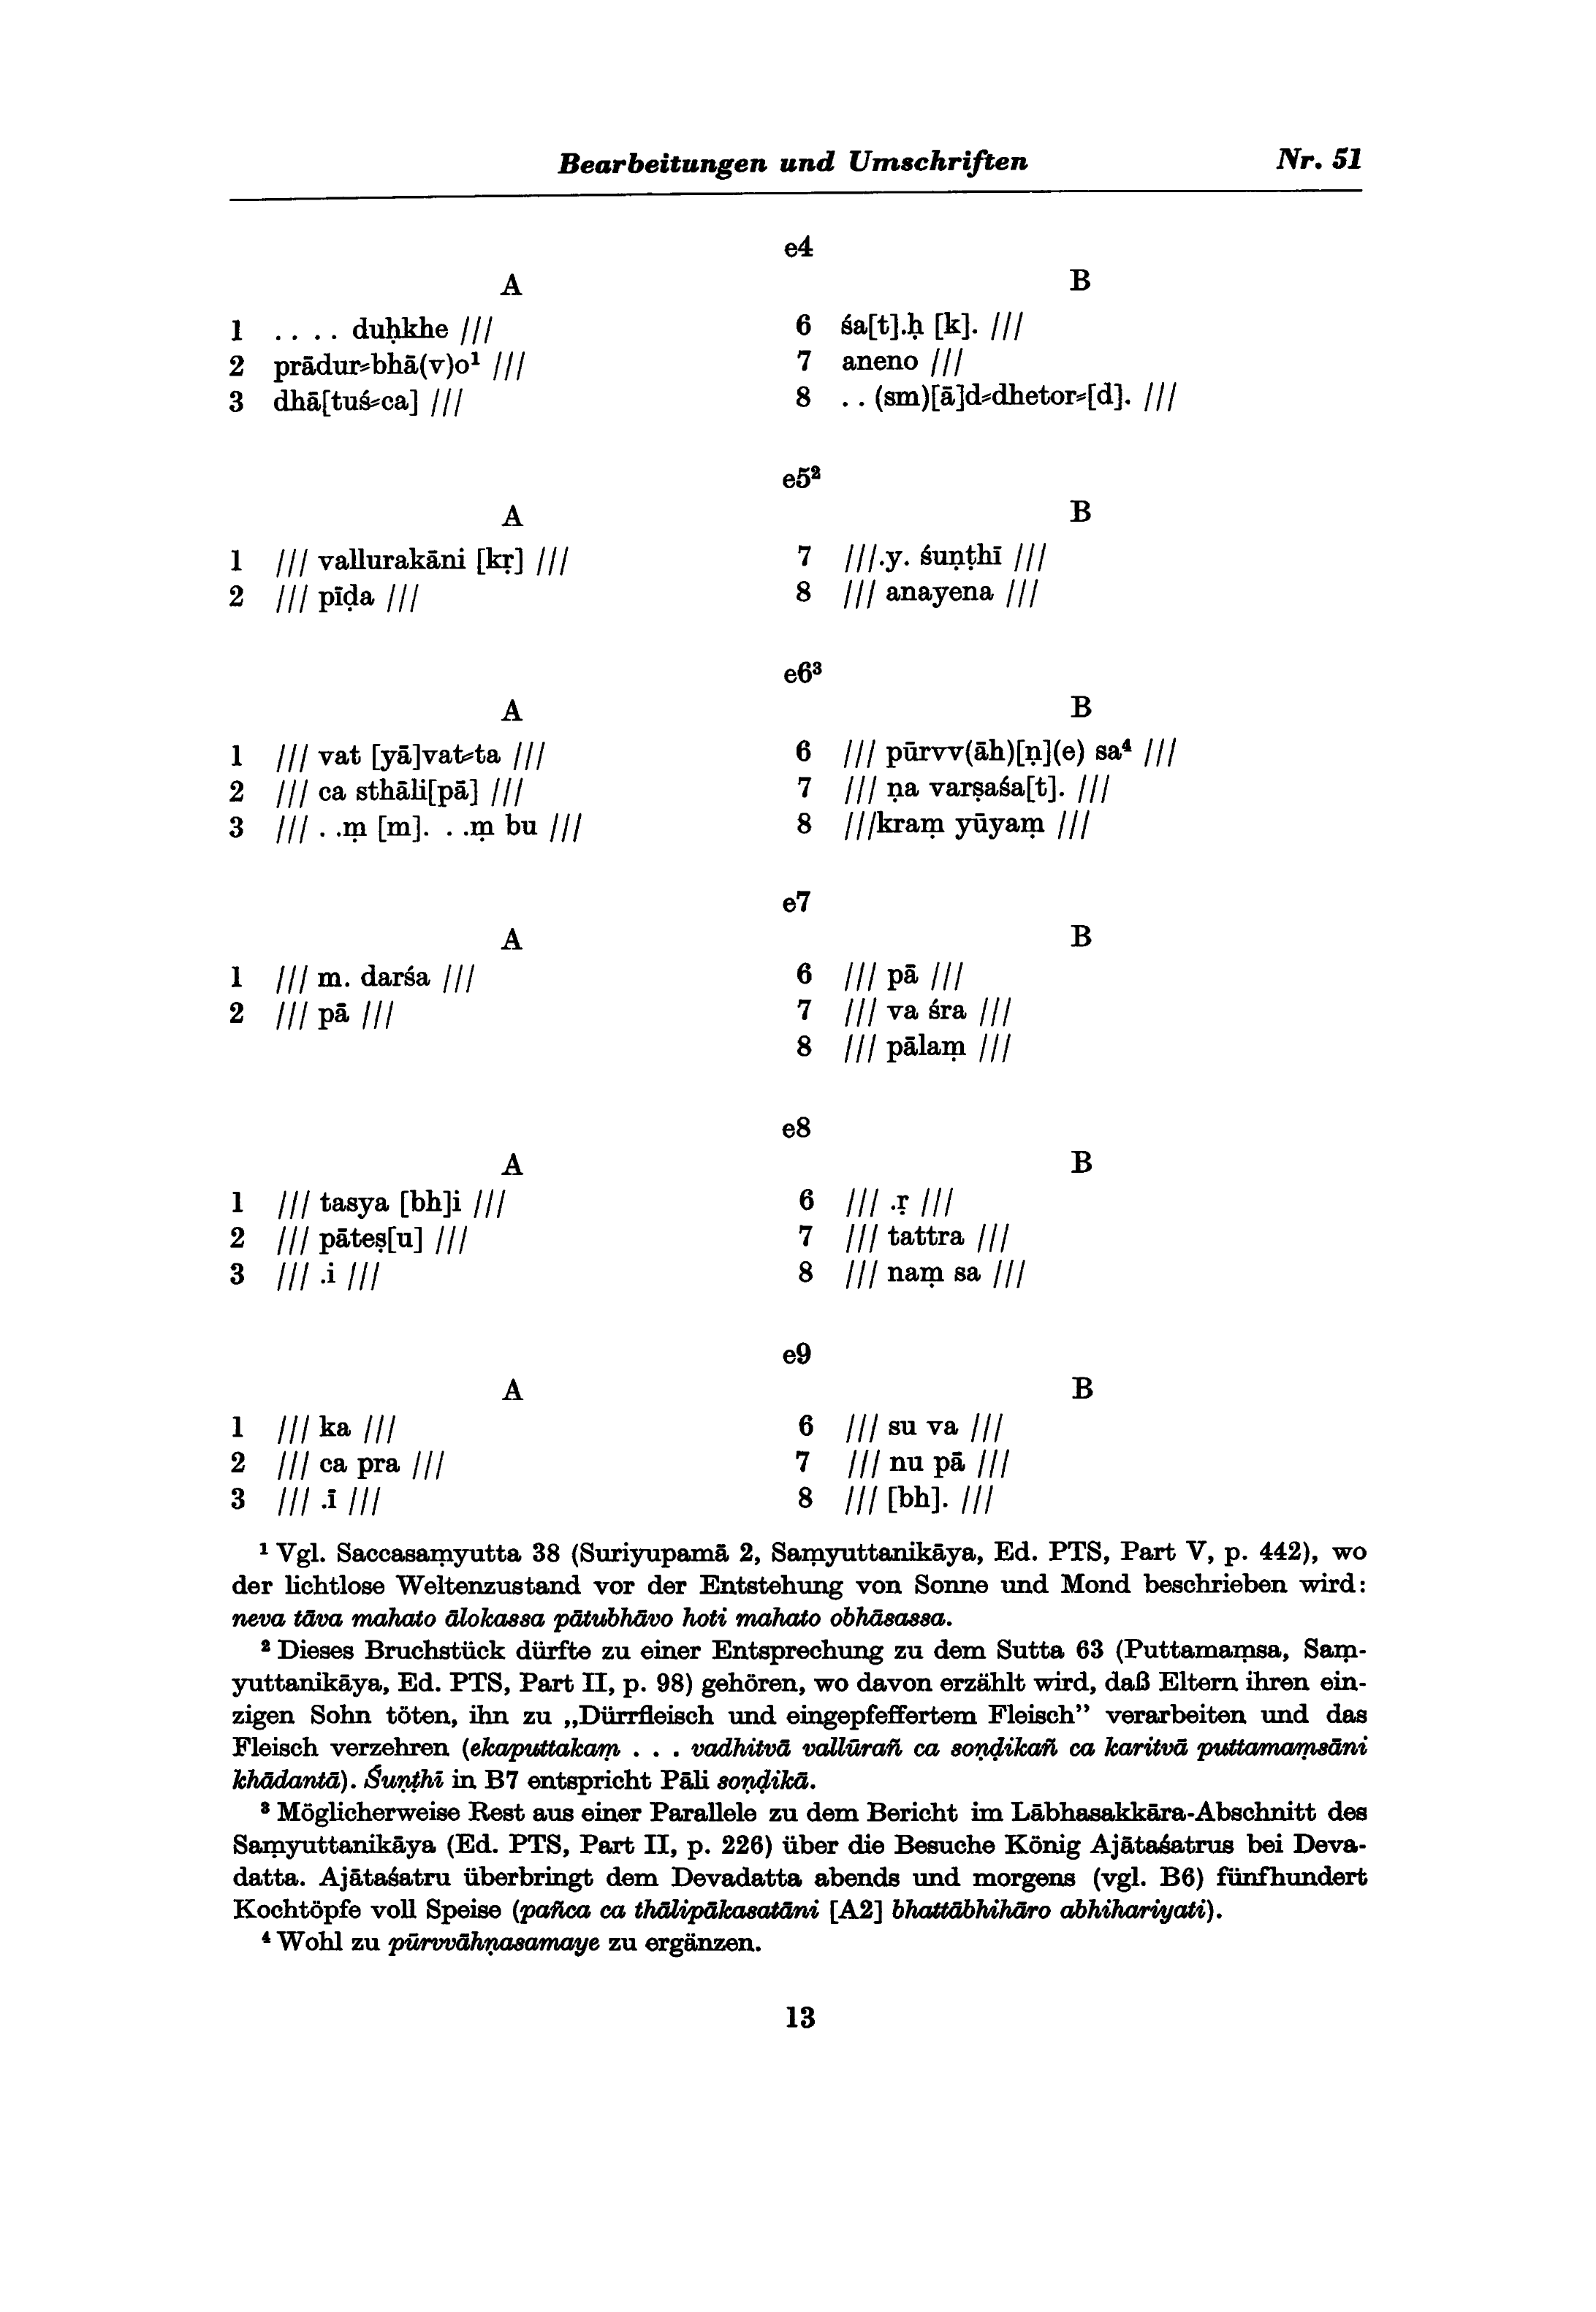 Bearbeitungen und Umschriften Nr. 51
e4
A
1 . . . . duḥkhe ///
2 prādur⸗bhā(v)o¹ ///
3 dhā[tuś⸗ca] ///
B
6 śa[t].ḥ [k]. ///
7 aneno ///
8 . . (sm)[ā]d⸗dhetor⸗[d]. ///
e5²
A
1 /// vallurakāni [kṛ] ///
2 /// pīḍa ///
B
7 ///.y. śuṇṭhī ///
8 /// anayena ///
e6³
A
1 /// vat [yā]vat⸗ta ///
2 /// ca sthāli[pā] ///
3 /// . .ṃ [m]. . .ṃ bu ///
B
6 /// pūrvv(āh)[ṇ](e) sa⁴ ///
7 /// ṇa varṣaśa[t]. ///
8 ///kraṃ yūyaṃ ///
e7
A
1 /// m. darśa ///
2 /// pā ///
B
6 /// pā ///
7 /// va śra ///
8 /// pālaṃ ///
e8
A
1 /// tasya [bh]i ///
2 /// pāteṣ[u] ///
3 /// .i ///
B
6 /// .ṛ ///
7 /// tattra ///
8 /// naṃ sa ///
e9
A
1 /// ka ///
2 /// ca pra ///
3 /// .ī ///
B
6 /// su va ///
7 /// nu pā ///
8 /// [bh]. ///
¹ Vgl. Saccasaṃyutta 38 (Suriyupamā 2, Saṃyuttanikāya, Ed. PTS, Part V, p. 442), wo
der lichtlose Weltenzustand vor der Entstehung von Sonne und Mond beschrieben wird:
neva tāva mahato ālokassa pātubhāvo hoti mahato obhāsassa.
² Dieses Bruchstück dürfte zu einer Entsprechung zu dem Sutta 63 (Puttamaṃsa, Saṃ-
yuttanikāya, Ed. PTS, Part II, p. 98) gehören, wo davon erzählt wird, daß Eltern ihren ein-
zigen Sohn töten, ihn zu „Dürrfleisch und eingepfeffertem Fleisch” verarbeiten und das
Fleisch verzehren (ekaputtakaṃ . . . vadhitvā vallūrañ ca soṇḍikañ ca karitvā puttamaṃsāni
khādantā). Śuṇṭhī in B7 entspricht Pāli soṇḍikā.
³ Möglicherweise Rest aus einer Parallele zu dem Bericht im Lābhasakkāra-Abschnitt des
Saṃyuttanikāya (Ed. PTS, Part II, p. 226) über die Besuche König Ajātaśatrus bei Deva-
datta. Ajātaśatru überbringt dem Devadatta abends und morgens (vgl. B6) fünfhundert
Kochtöpfe voll Speise (pañca ca thālipākasatāni [A2] bhattābhihāro abhihariyati).
⁴ Wohl zu pūrvvāhṇasamaye zu ergänzen.
13